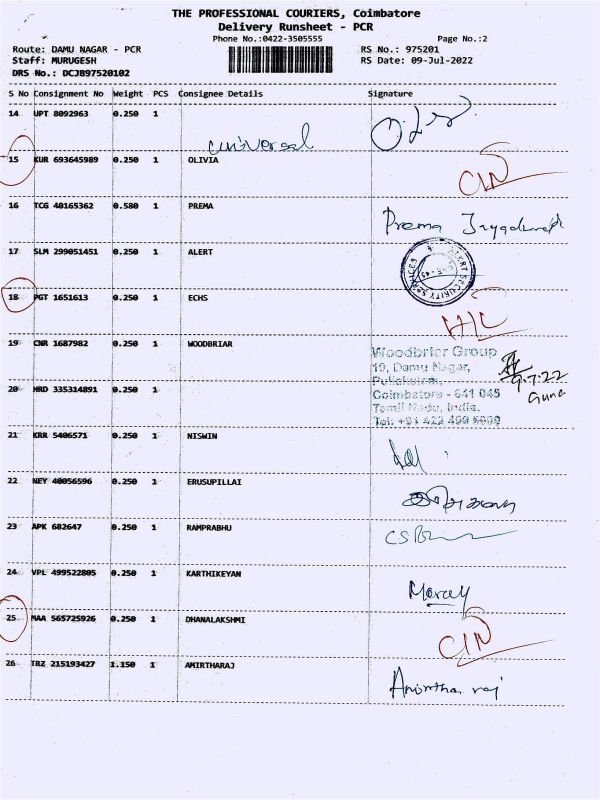 THE PROFESSIONAL COURIERS, Coimbatore
Delivery Runsheet - PCR
Phone No.:0422-3505555 Page No.:2
Route: DAMU NAGAR - PCR RS No.: 975201
Staff: MURUGESH RS Date: 09-Jul-2022
DRS No.: DCJB97520102
S No Consignment No Weight PCS Consignee Details Signature
14 UPT 8092963 0.250 1
universal
15 KUR 693645989 0.250 1 OLIVIA
16 TCG 40165362 0.580 1 PREMA
Prema
17 SLM 299051451 0.250 1 ALERT
18 PGT 1651613 0.250 1 ECHS
19 CNR 1687982 0.250 1 WOODBRIAR
Woodbriar Group
19, Damu Nagar,
20 HRD 335314891 0.250 1
9.7.22
Coimbatore - 641 045
Guna
Tamil Nadu, India.
21 KRR 5406571 0.250 1 NISWIN
22 NEY 40056596 0.250 1 ERUSUPILLAI
23 APK 682647 0.250 1 RAMPRABHU
24 VPL 499522805 0.250 1 KARTHIKEYAN
Marcey
25 MAA 565725926 0.250 1 DHANALAKSHMI
26 TRZ 215193427 1.150 1 AMIRTHARAJ
Amirtha raj